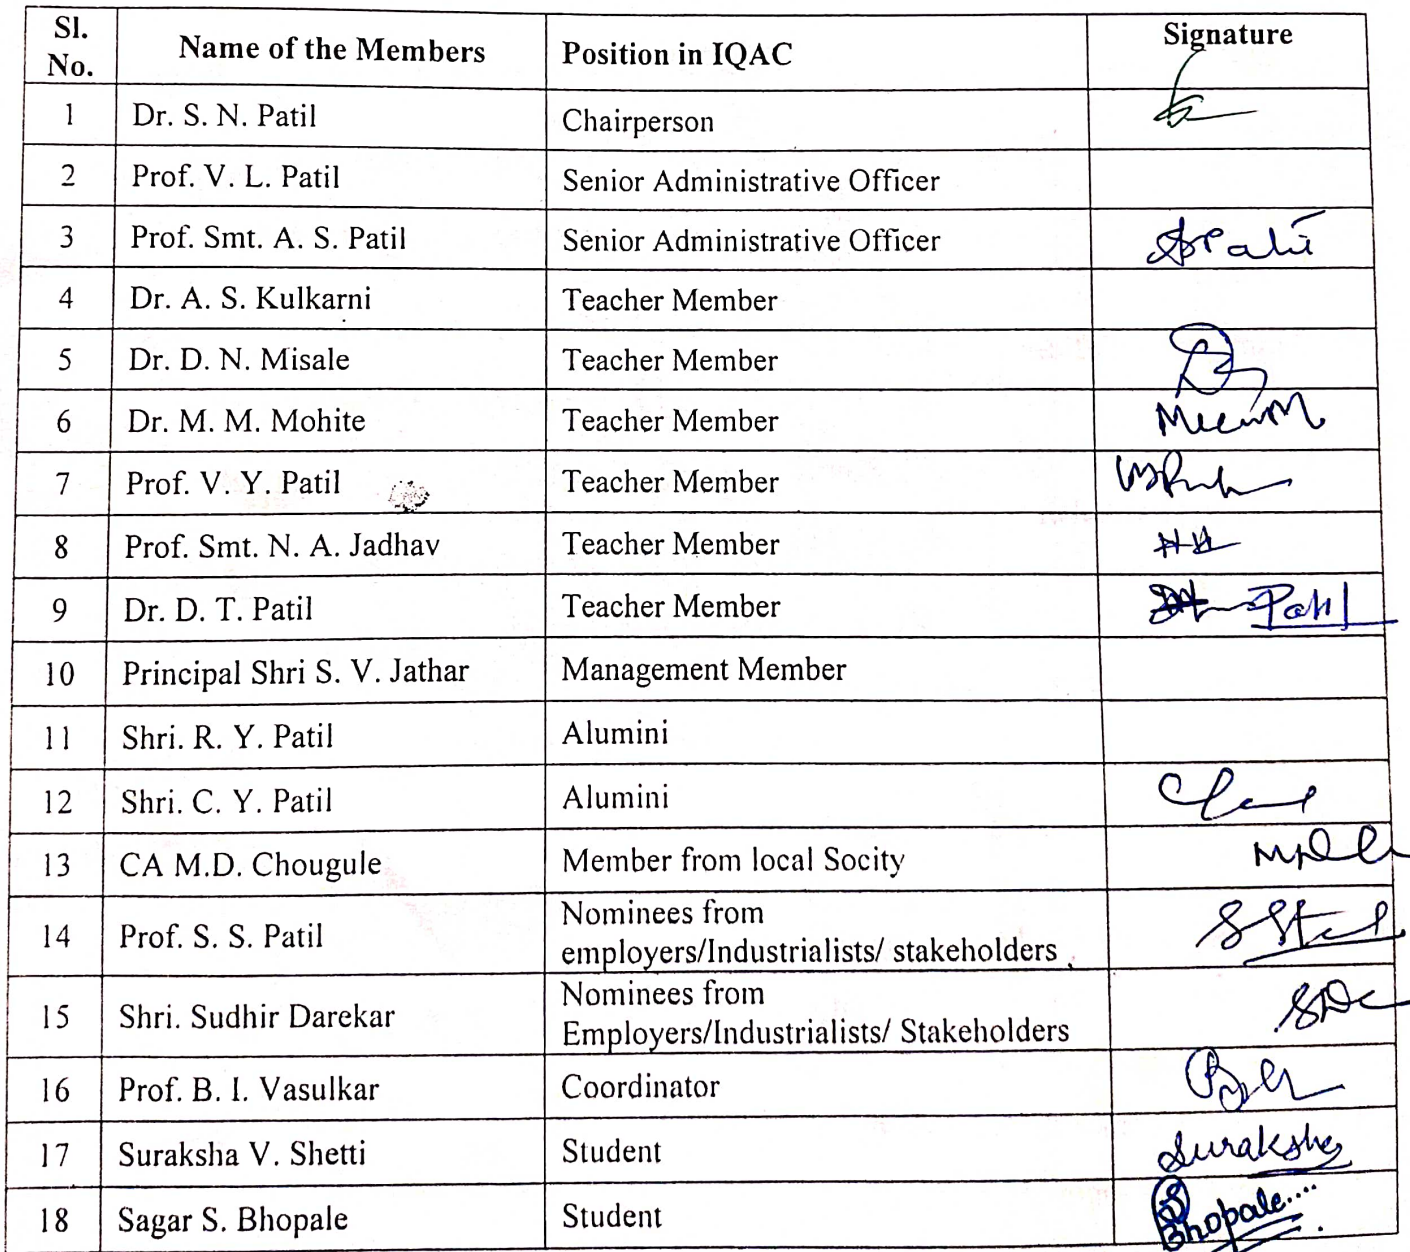 Sl. No. Name of the Members Position in IQAC Signature
1 Dr. S. N. Patil Chairperson
2 Prof. V. L. Patil Senior Administrative Officer
3 Prof. Smt. A. S. Patil Senior Administrative Officer
4 Dr. A. S. Kulkarni Teacher Member
5 Dr. D. N. Misale Teacher Member
6 Dr. M. M. Mohite Teacher Member
7 Prof. V. Y. Patil Teacher Member
8 Prof. Smt. N. A. Jadhav Teacher Member
9 Dr. D. T. Patil Teacher Member Patil
10 Principal Shri S. V. Jathar Management Member
11 Shri. R. Y. Patil Alumini
12 Shri. C. Y. Patil Alumini
13 CA M.D. Chougule Member from local Socity
14 Prof. S. S. Patil Nominees from
employers/Industrialists/ stakeholders
15 Shri. Sudhir Darekar Nominees from
Employers/Industrialists/ Stakeholders
16 Prof. B. I. Vasulkar Coordinator
17 Suraksha V. Shetti Student Suraksha
18 Sagar S. Bhopale Student Bhopale